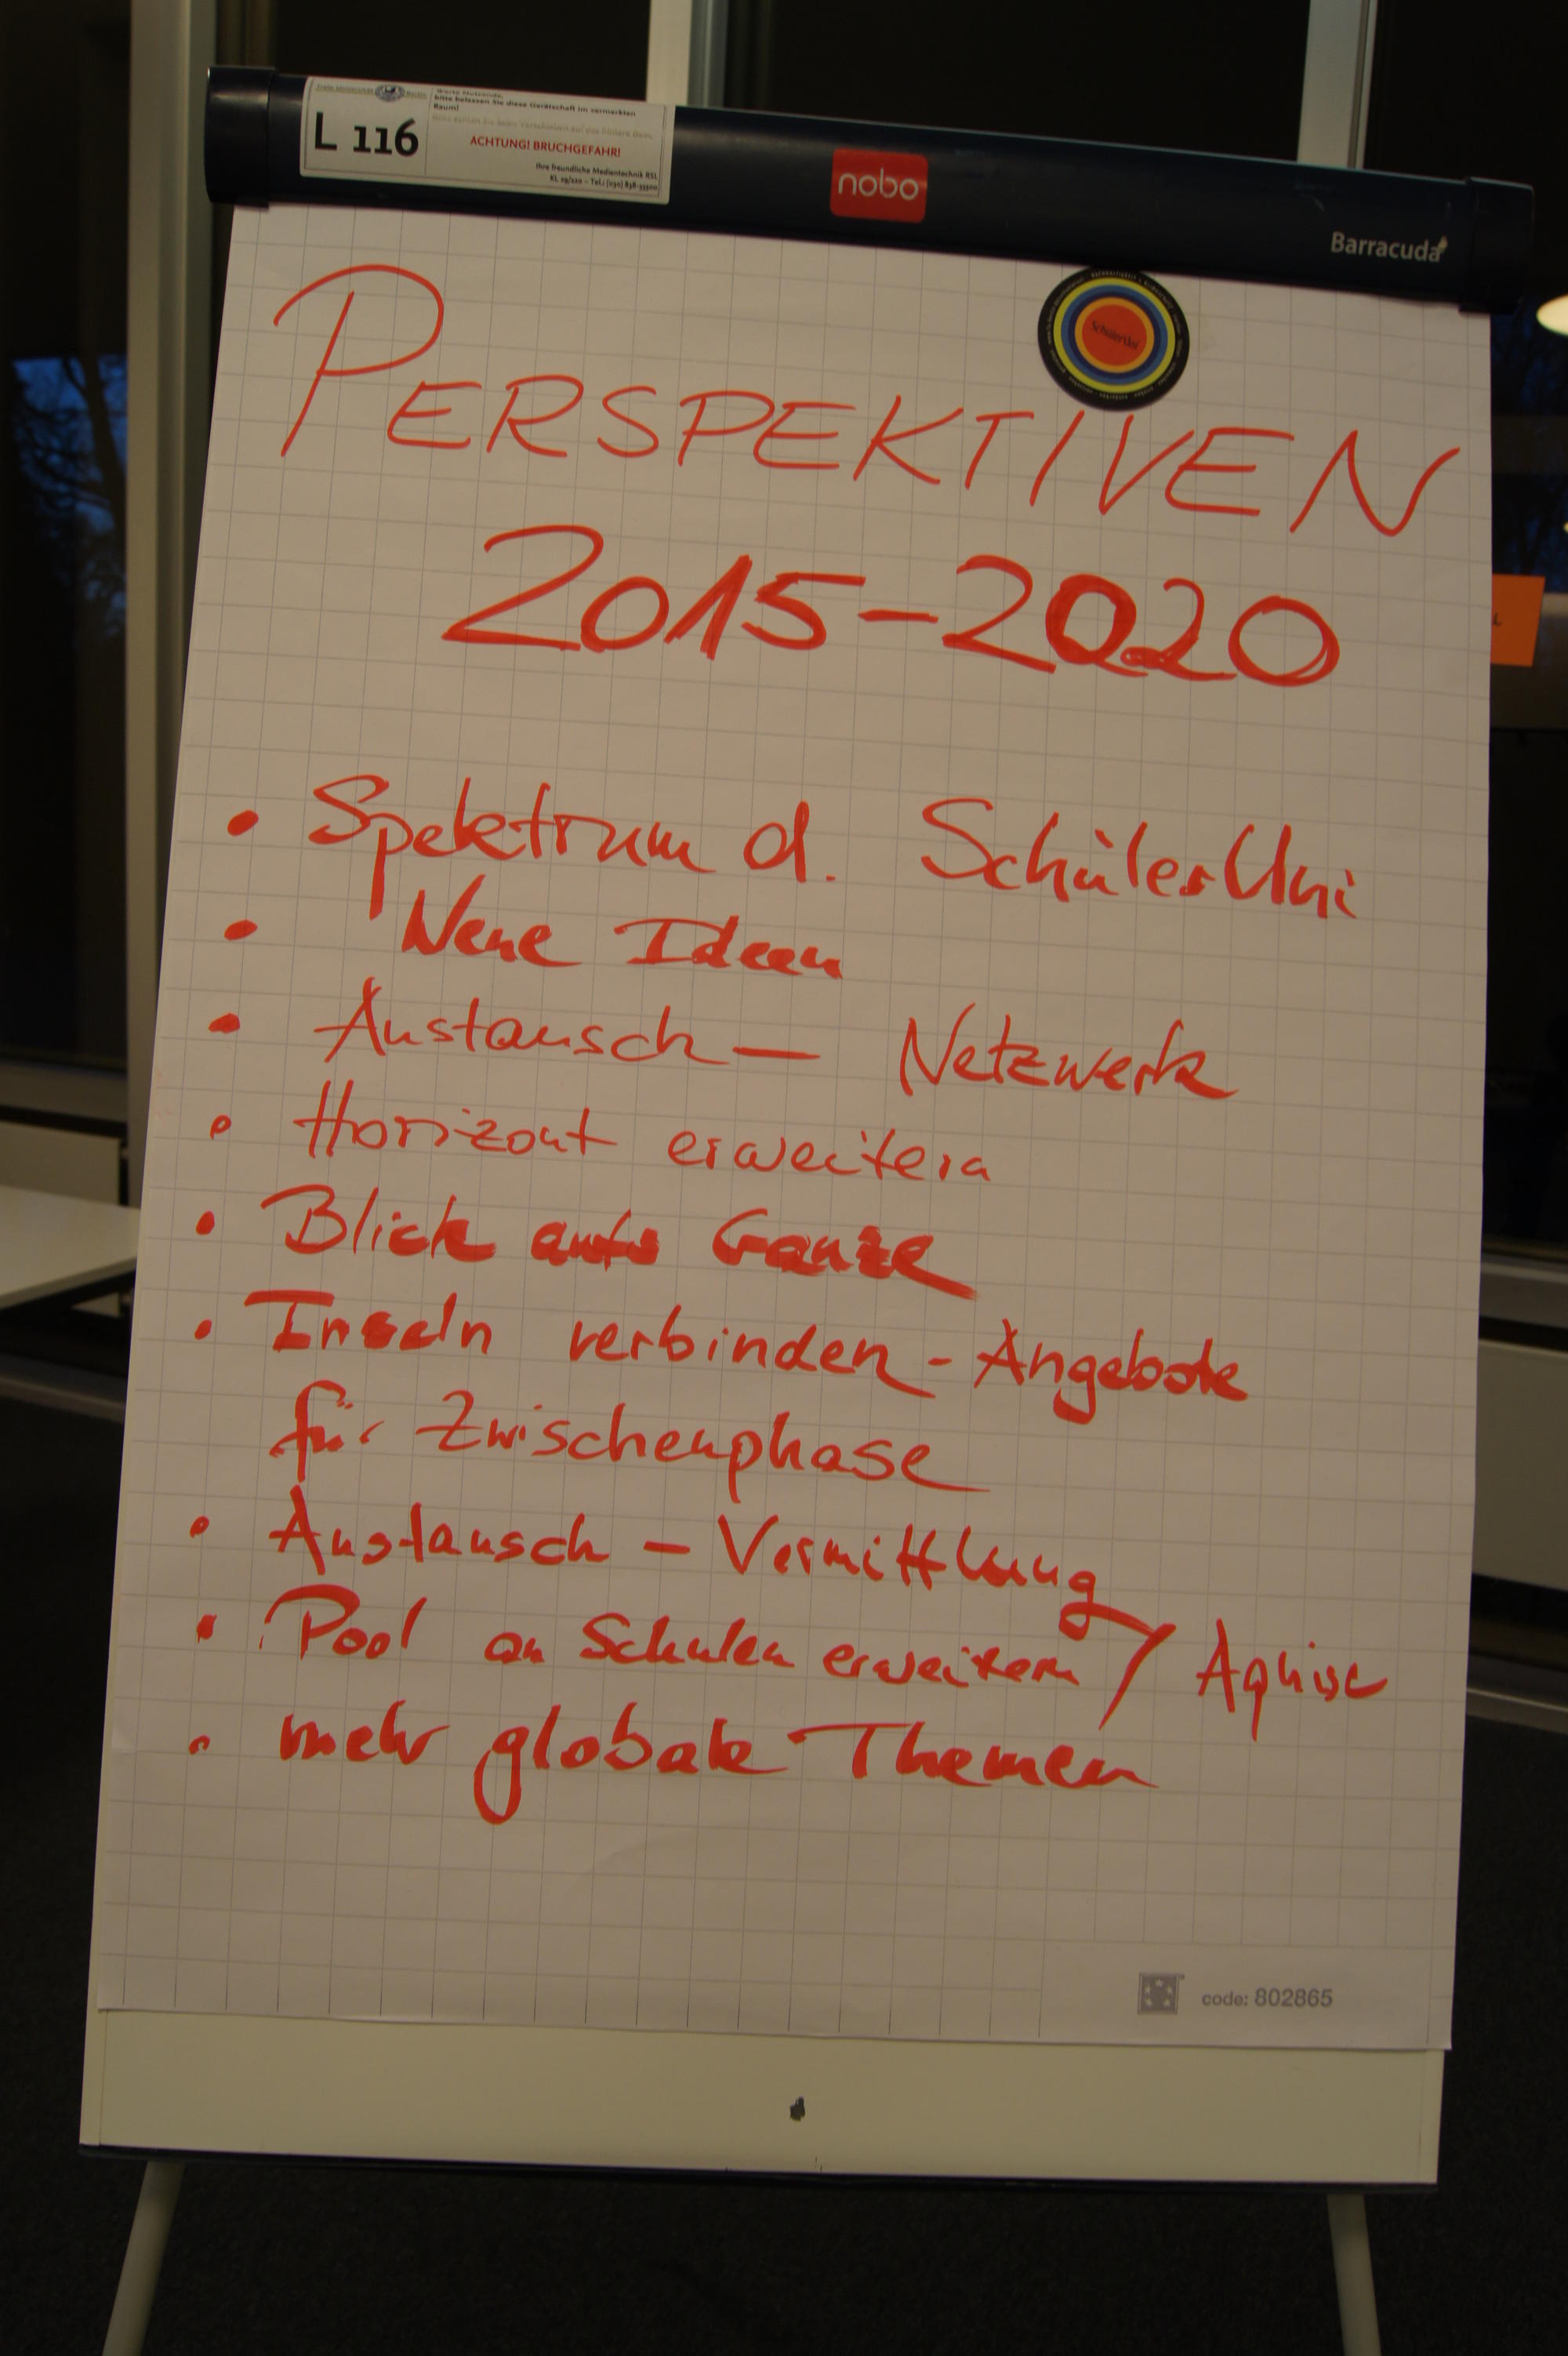 Freie Universität Berlin
L 116
Werte Nutzende,
bitte belassen Sie diese Gerätschaft im vermerkten
Raum!
ACHTUNG! BRUCHGEFAHR!
Ihre freundliche Medientechnik RSL
KL 29/220 – Tel.: (030) 838-55500
nobo
Barracuda
SchülerUni
PERSPEKTIVEN
2015-2020
• Spektrum d. SchülerUni
• Neue Ideen
• Austausch — Netzwerk
• Horizont erweitern
• Blick aufs Ganze
• Inseln verbinden - Angebote
für Zwischenphase
• Austausch - Vermittlung
• Pool an Schulen erweitern / Aquise
• mehr globale Themen
code: 802865